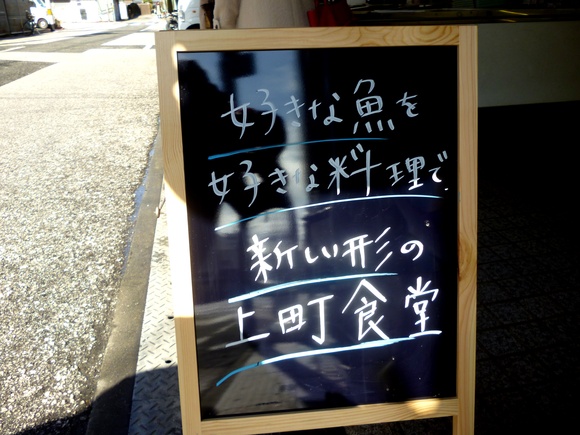 好きな魚を
好きな料理で
新しい形の
上町食堂